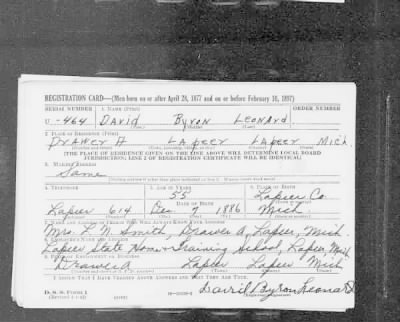 REGISTRATION CARD—(Men born on or after April 28, 1877 and on or before February 16, 1897)
SERIAL NUMBER 1. NAME (Print) ORDER NUMBER
U -464 DAVID BYRON LEONARD
(First) (Middle) (Last)
2. PLACE OF RESIDENCE (Print)
DRAWER A LAPEER LAPEER MICH
[THE PLACE OF RESIDENCE GIVEN ON THE LINE ABOVE WILL DETERMINE LOCAL BOARD
JURISDICTION; LINE 2 OF REGISTRATION CERTIFICATE WILL BE IDENTICAL]
3. MAILING ADDRESS
Same
4. TELEPHONE 5. AGE IN YEARS 6. PLACE OF BIRTH
55 Lapeer Co.
DATE OF BIRTH
Lapeer 614 Dec 7 1886 Mich
7. NAME AND ADDRESS OF PERSON WHO WILL ALWAYS KNOW YOUR ADDRESS
Mrs. L. N. Smith, Drawer A, Lapeer, Mich.
8. EMPLOYER'S NAME AND ADDRESS
Lapeer State Home & Training School, Lapeer, Mich
9. PLACE OF EMPLOYMENT OR BUSINESS
Drawer A Lapeer Lapeer Mich
I AFFIRM THAT I HAVE VERIFIED ABOVE ANSWERS AND THAT THEY ARE TRUE.
D. S. S. Form 1
Byron Leonard